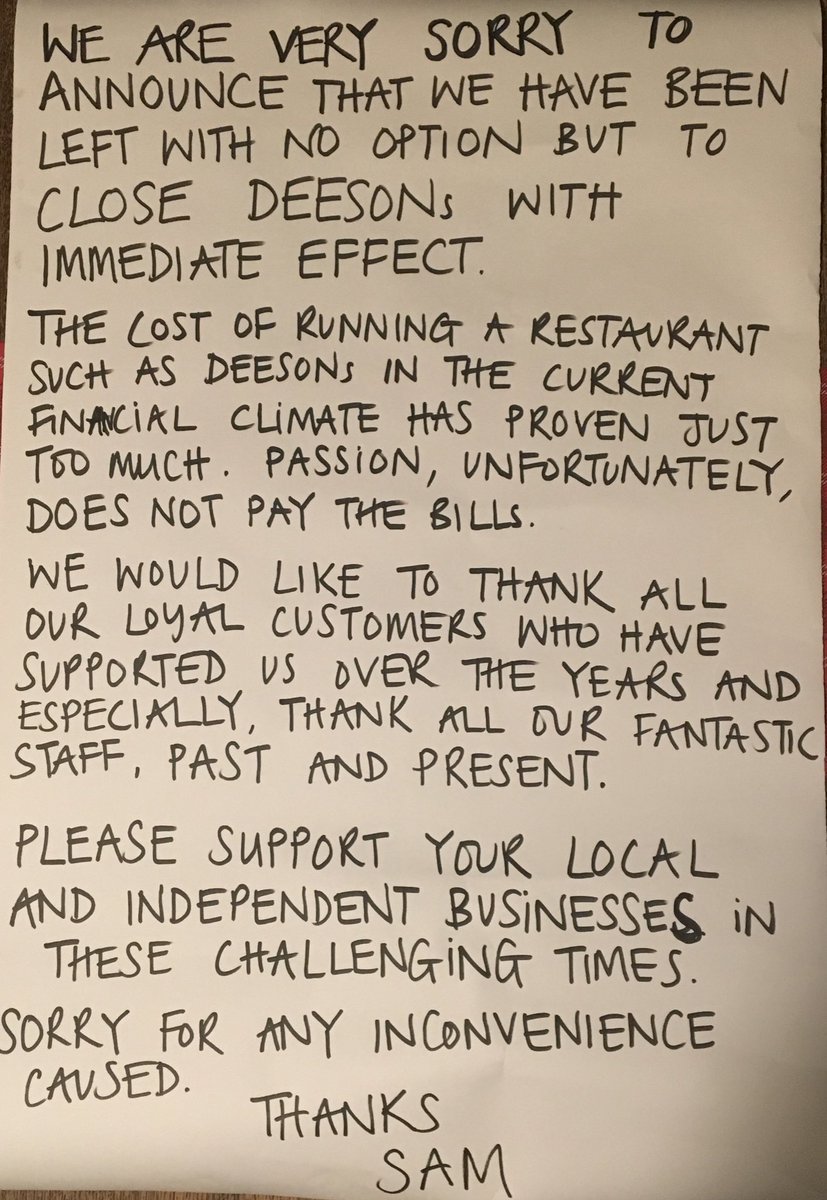 WE ARE VERY SORRY TO
ANNOUNCE THAT WE HAVE BEEN
LEFT WITH NO OPTION BUT TO
CLOSE DEESONs WITH
IMMEDIATE EFFECT.
THE COST OF RUNNING A RESTAURANT
SUCH AS DEESONs IN THE CURRENT
FiNANCIAL CLiMATE HAS PROVEN JUST
TOO MUCH. PASSION, UNFORTUNATELY,
DOES NOT PAY THE BILLS.
WE WOULD LIKE TO THANK ALL
OUR LOYAL CUSTOMERS WHO HAVE
SUPPORTED US OVER THE YEARS AND
ESPECIALLY, THANK ALL OUR FANTASTIC
STAFF, PAST AND PRESENT.
PLEASE SUPPORT YOUR LOCAL
AND INDEPENDENT BUSiNESSES iN
THESE CHALLENGiNG TIMES.
SORRY FOR ANY INCONVENIENCE
CAUSED.
THANKS
SAM